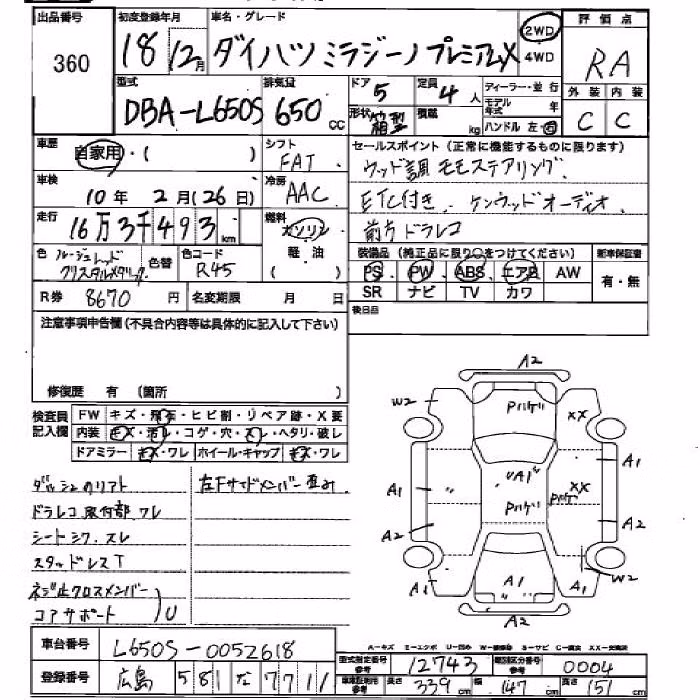 出品番号 初度登録年月 車名・グレード 評価点
360 18 12月 ダイハツ ミラジーノ プレミアムX 2WD 4WD RA
型式 排気量 ドア 定員 ディーラー・並行 外装 内装
DBA-L650S 650 CC 5 4人 モデル年式 年 C C
形状 箱型 積載 kg ハンドル 左・右
車歴 自家用・( ) シフト FAT セールスポイント(正常に機能するものに限ります)
車検 10年 2月(26日) 冷房 AAC ウッド調 モモステアリング、
走行 16万3千493km 燃料 ガソリン ETC付き、ケンウッドオーディオ、
軽油 ( ) 前方ドラレコ
色 ルージュレッドクリスタルメタリック 色替 色コード R45 装備品(純正品に限り○をつけてください) 新車保証書
PS PW ABS エアB AW 有・無
SR ナビ TV カワ
R券 8670円 名変期限 月 日 後日品
注意事項申告欄(不具合内容等は具体的に記入して下さい)
修復歴 有 (箇所 )
検査員記入欄 FW キズ・飛石・ヒビ割・リペア跡・X要
内装 キズ・汚レ・コゲ・穴・スレ・ヘタリ・破レ
ドアミラー キズ・ワレ ホイール・キャップ キズ・ワレ
ダッシュのリアト 左Fサイドメンバー歪み
ドラレコ取付部ワレ
シートシワ、スレ
スタッドレスT
ネジ止クロスメンバー
コアサポート U
A2
W2 XX
A1 UA1 XX A1
A2 A2
A1 A1 A1 W2
A2
A-キズ E-エクボ U-凹み W-補修跡 S-サビ C-腐食 XX-交換済
車台番号 L650S-0052618
型式指定番号 参考 12743 類別区分番号 参考 0004
登録番号 広島 581 な 7711
車検証記載 参考 長さ 339cm 幅 147cm 高さ 151cm